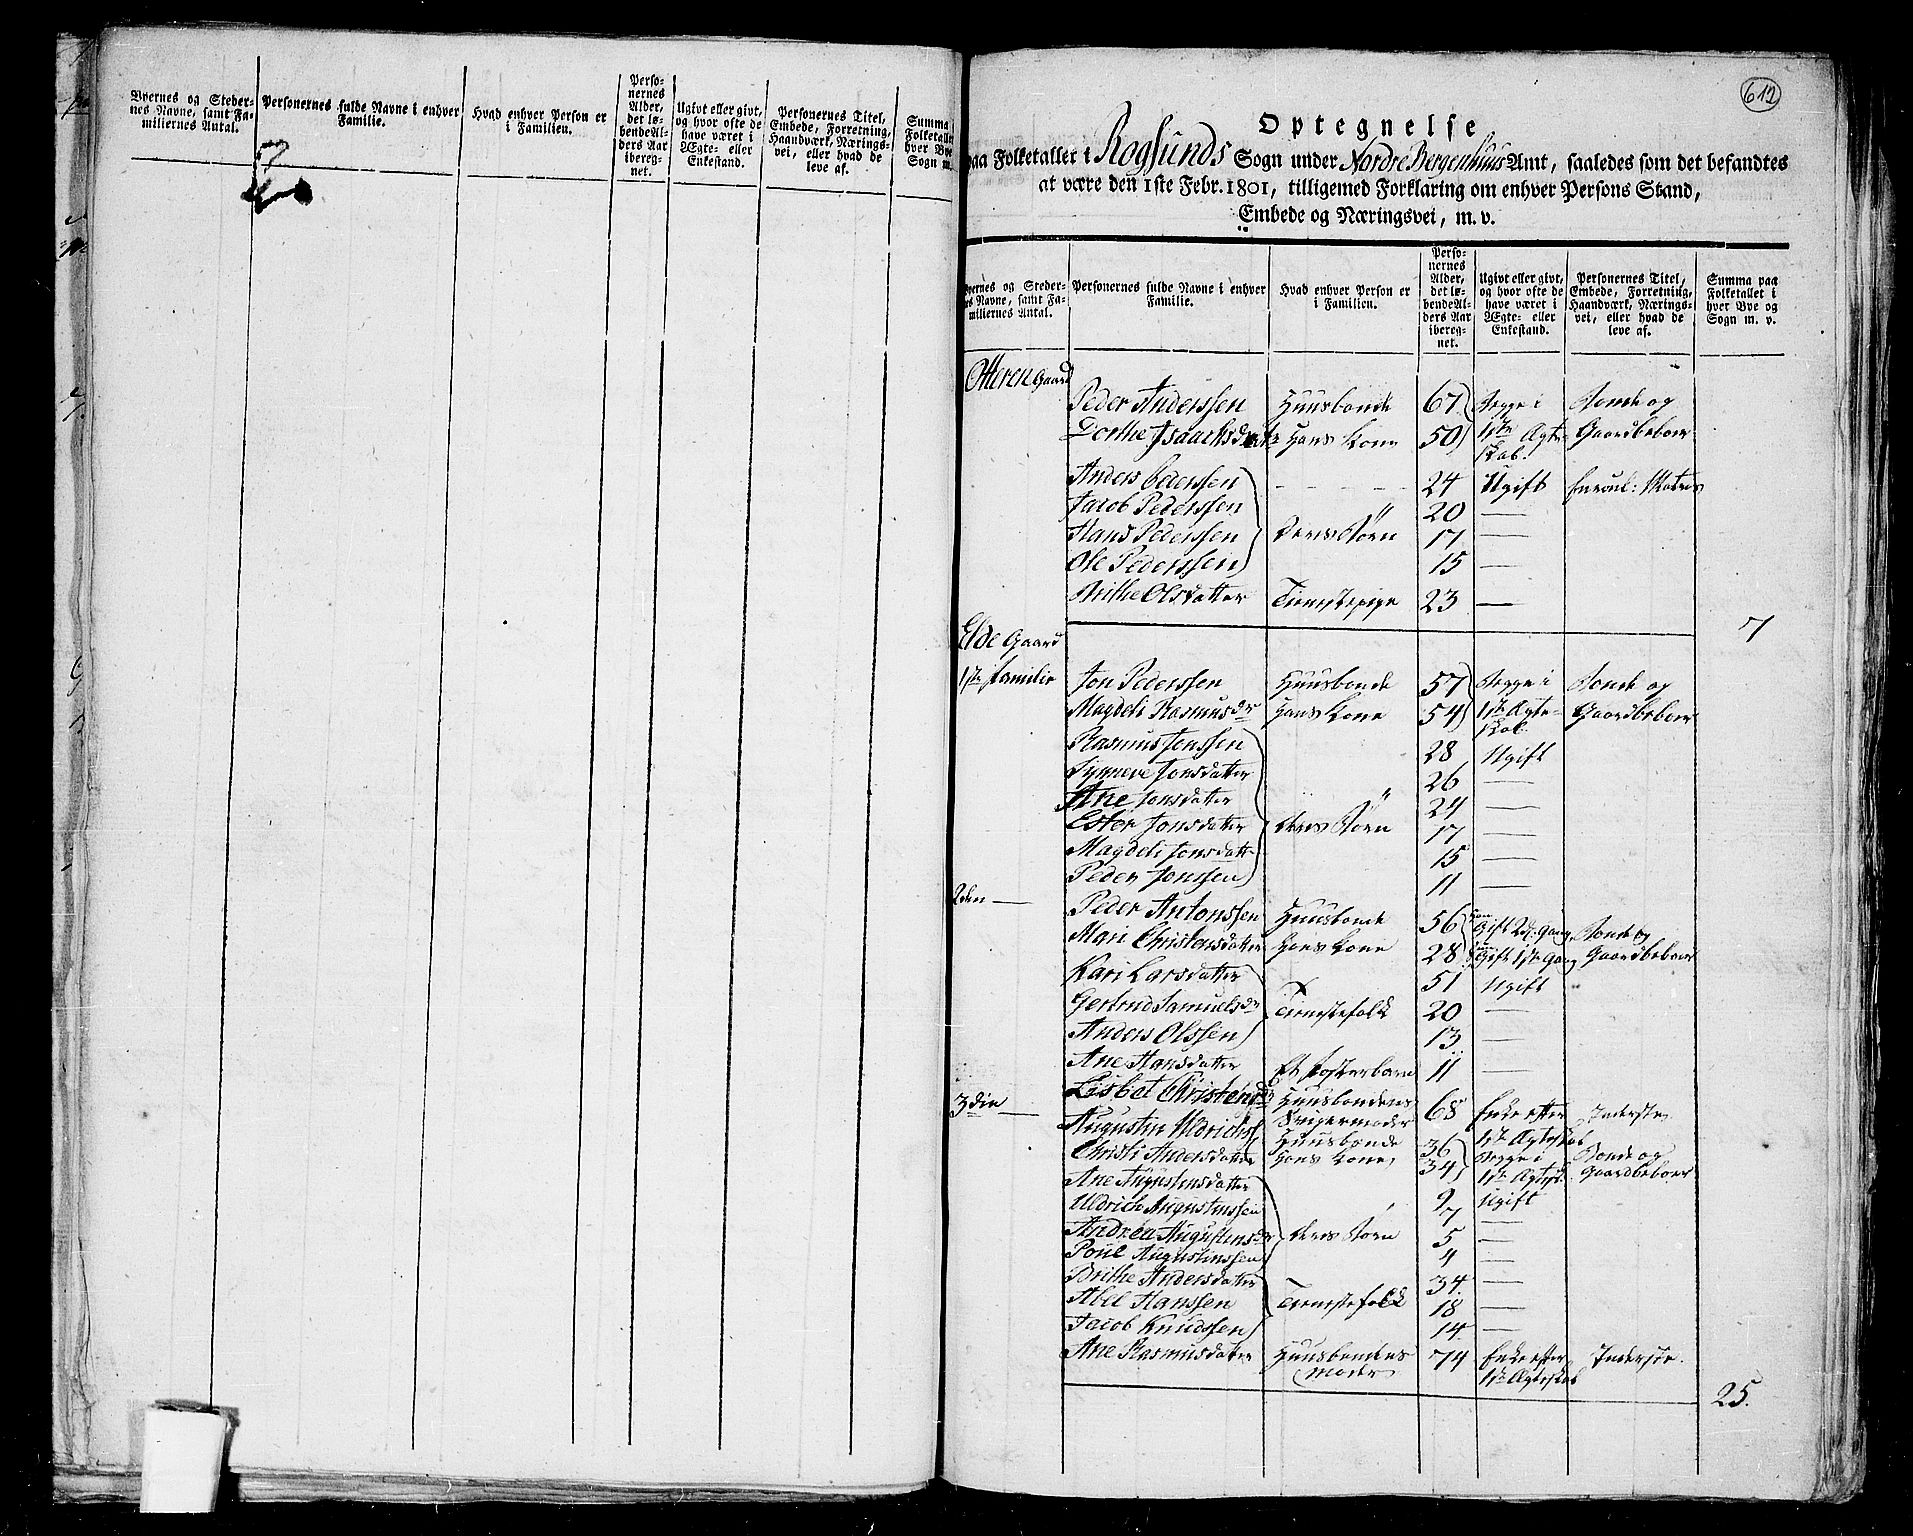 Byernes og Steder-
nes Navne, samt Fa-
miliernes Antal.
Personernes fulde Navne i enhver
Familie.
Hvad enhver Person er
i Familien.
Perso-
nernes
Alder,
det lø-
bende Al-
ders Aar
ibereg-
net.
Ugivt eller givt,
og hvor ofte de
have været i
Ægte- eller
Enkestand.
Personernes Titel,
Embede, Forretning,
Haandværk, Nærings-
vei, eller hvad de
leve af.
Summa
Folketallet
hver Bye
Sogn m.
612
Optegnelse
paa Folketallet i Rogsunds Sogn under Nordre Bergenhuus Amt, saaledes som det befandtes
at være den 1ste Febr. 1801, tilligemed Forklaring om enhver Persons Stand,
Embede og Næringsvei, m. v.
Byernes og Steder-
nes Navne, samt Fa-
miliernes Antal.
Personernes fulde Navne i enhver
Familie.
Hvad enhver Person er
i Familien.
Perso-
nernes
Alder,
det lø-
bende Al-
ders Aar
ibereg-
net.
Ugivt eller givt,
og hvor ofte de
have været i
Ægte- eller
Enkestand.
Personernes Titel,
Embede, Forretning,
Haandværk, Nærings-
vei, eller hvad de
leve af.
Summa paa
Folketallet i
hver Bye og
Sogn m. v.
Otteren Gaard
Peder Anderssen Huusbonde 67 Begge i Bonde og
Dorthe Isaachsdatter Hans Kone 50 1ste Ægte- Gaardbeboer
skab.
Anders Pederssen 24 Ugift Enroul: Matros
Jacob Pederssen 20 —
Hans Pederssen Deres Børn 17 —
Ole Pederssen 15 —
Brithe Olsdatter Tienestepige 23 —
7
Elde Gaard
1ste Familie Jon Pederssen Huusbonde 57 Begge i Bonde og
Magdeli Rasmusdr Hans Kone 54 1ste Ægte- Gaardbeboer
skab.
Rasmus Jonssen 28 Ugift
Synneve Jonsdatter 26 —
Ane Jonsdatter 24 —
Ester Jonsdatter Deres Børn 17 —
Magdeli Jonsdatter 15 —
Peder Jonssen 11 —
2den — Peder Antonssen Huusbonde 56 Gift 2d. Gang Bonde og
Mari Christensdatter Hans Kone 28 Gift 1ste Gang Gaardbeboer
Kari Larsdatter 51 Ugift
Gertrud Samuelsdr Tienestefolk 20 —
Anders Olssen 13 —
Ane Hansdatter Et Fosterbarn 11 —
Lisbet Christensd Huusbondens 68 Enke efter Inderste
Svigermoder 1ste Ægteskab
3die — Augustin Uldrichs Huusbonde 36 Begge i Bonde og
Christi Andersdatter Hans Kone 34 1ste Ægtesk. Gaardbeboer
Ane Augustinsdatter 9 Ugift
Uldrich Augustinssen 7 —
Andrea Augustinsdr Deres Børn 5 —
Poul Augustinssen 4 —
Brithe Andersdatter 34. —
Abel Hanssen Tienestefolk 18 —
Jacob Knudssen 14. —
Ane Rasmusdatter Huusbondens 74 Enke efter Inderste.
Moder 1ste Ægteskab
25.